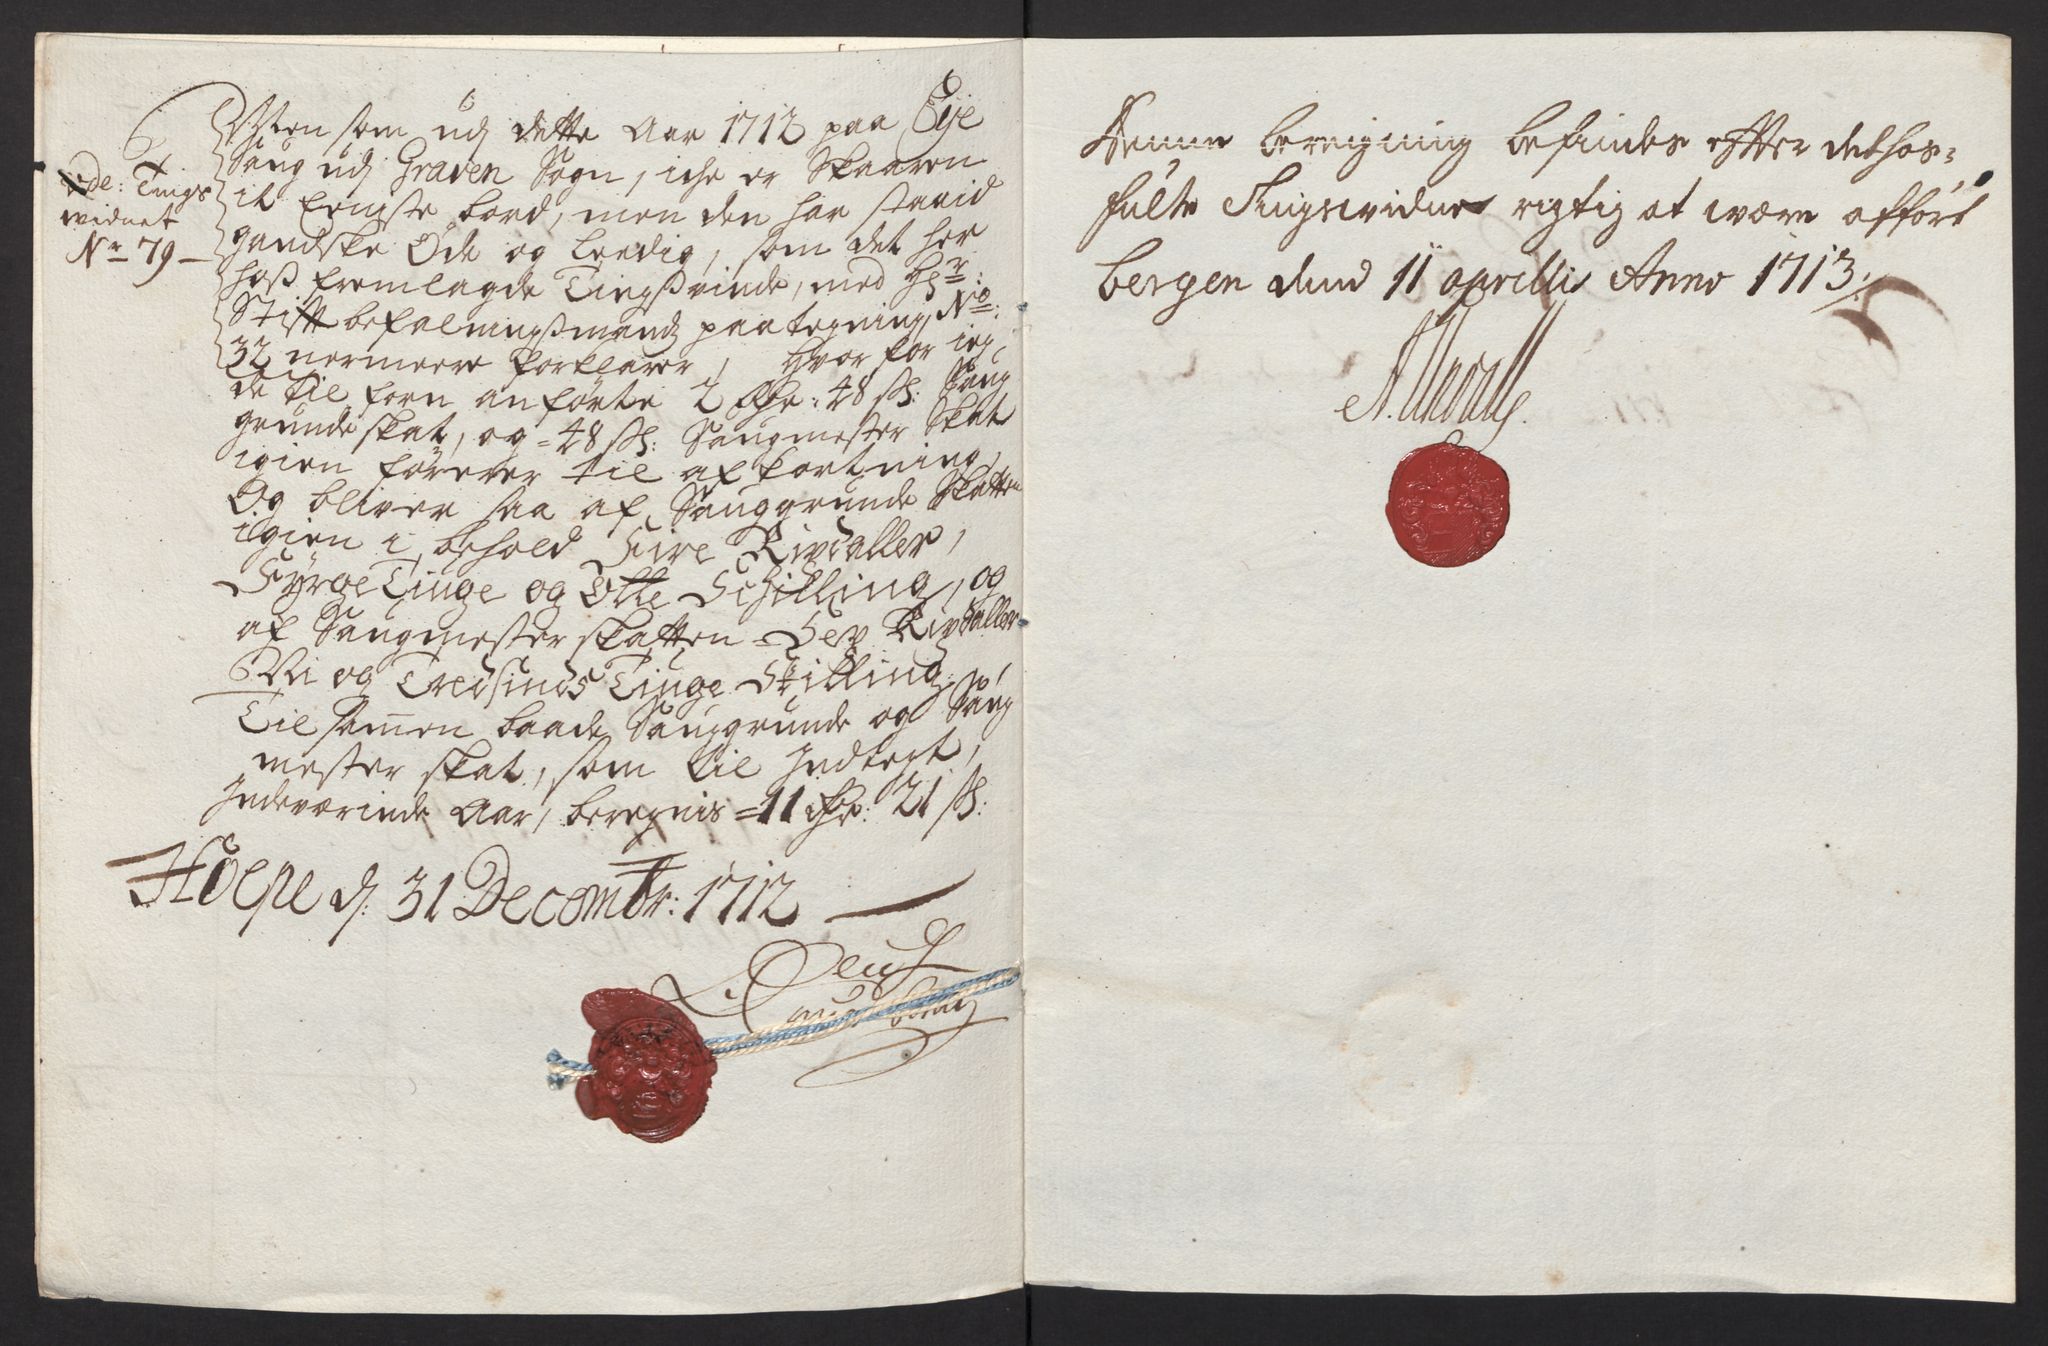 Vide: Tings
widnet
No 79
Men som udj dette Aar 1712 paa Eje
Saug udj Graven Sogn, iche er Skaaren
it Eeniste bord, men den har staaid
gandske Øde og Leedig, som det her
hoß fremlagde Tingßvinde, med Hr:
Stiftbefalningßmands paategning No:
32 nermeere forklarer, Hvor for ieg
de til forn anførte 2 Rdr: 48 sk: Saug
grunde skat, og = 48 sk: Saugmester Skat
igien fører til afkortning,
Og bliver saa af Sauggrunde Skatten
igien i behold Fire Rixdaller,
Fyrgetiuge og Otte Schilling, og
af Saugmester skatten = Sex Rixdaller
Ni og Tredsinds Tiuge Skilling.
Tilsamen baade Sauggrunde og Saug
mester skat, som til Indtegt,
Indeværinde Aar, beregnis = 11 Rdr: 21 sk:
Høepe d: 31 Decembr: 1712
Denne beregning befindes efter dethos=
fulte Tingswidne rigtig at være afført
bergen dend 11 aprillis Anno 1713